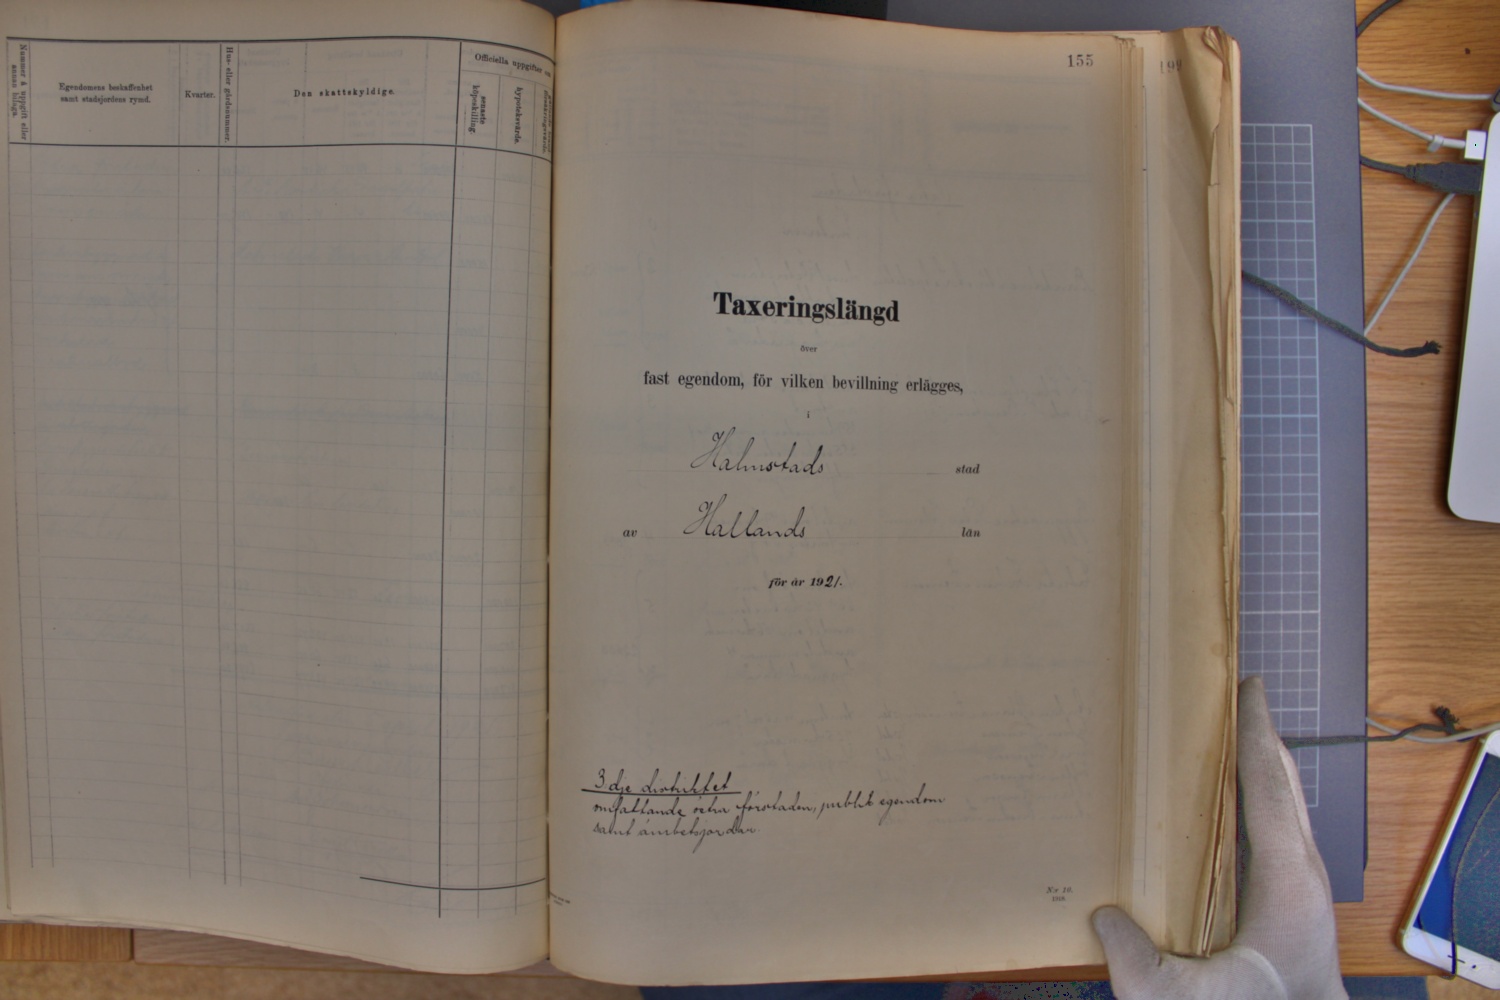 Nummer å uppgift eller annan bilaga.
Egendomens beskaffenhet samt stadsjordens rymd.
Kvarter.
Hus- eller gårdsnummer.
Den skattskyldige.
Officiella uppgifter om
senaste köpeskilling.
hypoteksvärde.
155
199
Taxeringslängd
över
fast egendom, för vilken bevillning erlägges,
i
Halmstads stad
av Hallands län
för år 1921.
3dje distriktet
omfattande östra förstaden, publik egendom
samt ämbetsjordar
N:r 10.